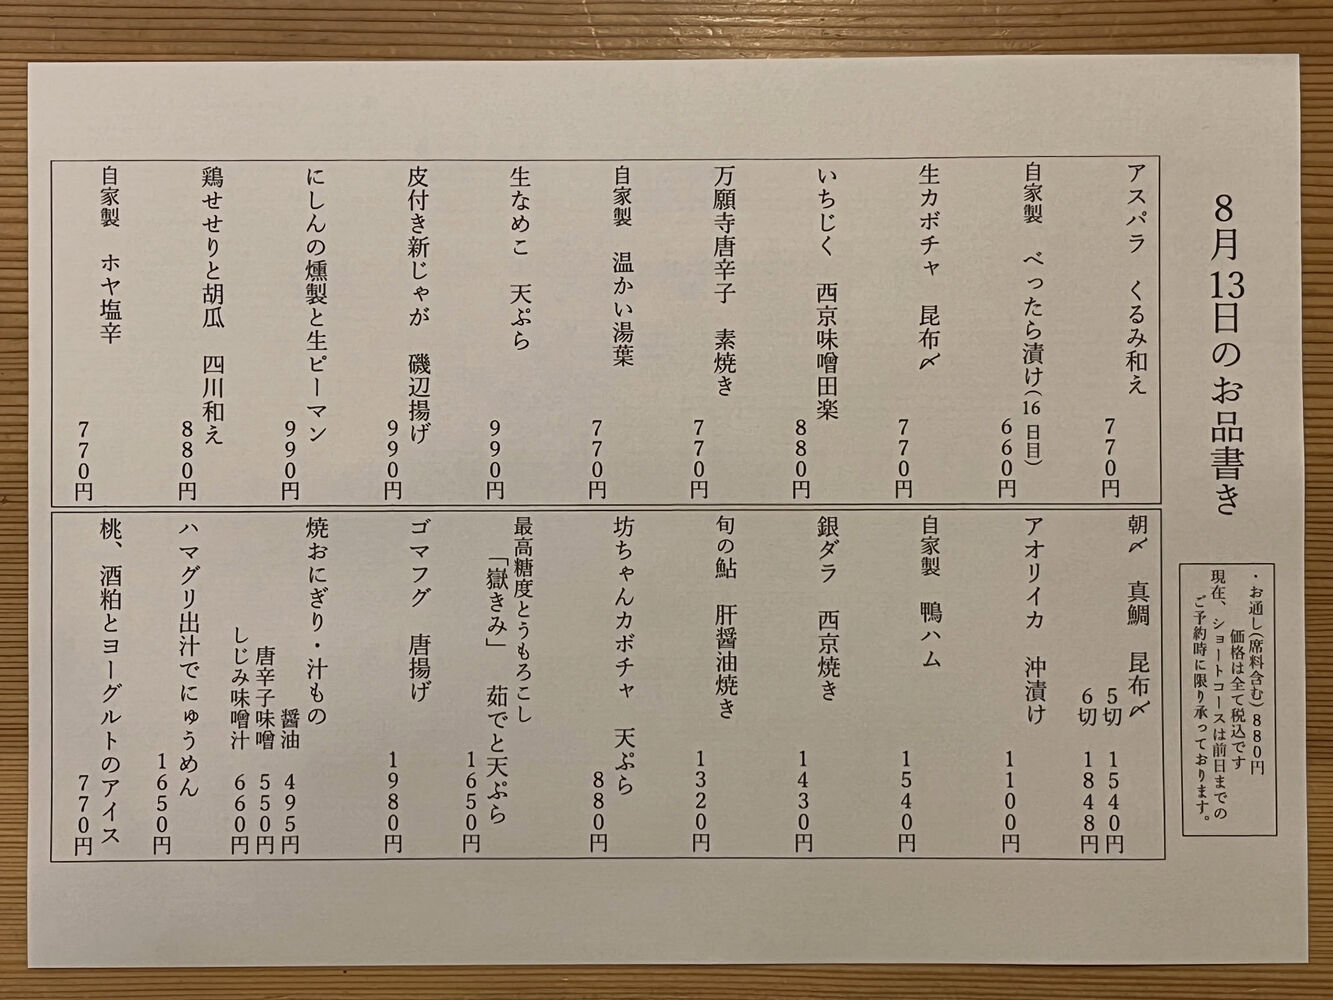 8月13日のお品書き
・お通し(席料含む)880円
価格は全て税込です
現在、ショートコースは前日までの
ご予約時に限り承っております。
アスパラ　くるみ和え
770円
自家製　べったら漬け(16日目)
660円
生カボチャ　昆布〆
770円
いちじく　西京味噌田楽
880円
万願寺唐辛子　素焼き
770円
自家製　温かい湯葉
770円
生なめこ　天ぷら
990円
皮付き新じゃが　磯辺揚げ
990円
にしんの燻製と生ピーマン
990円
鶏せせりと胡瓜　四川和え
880円
自家製　ホヤ塩辛
770円
朝〆　真鯛　昆布〆
5切　1540円
6切　1848円
アオリイカ　沖漬け
1100円
自家製　鴨ハム
1540円
銀ダラ　西京焼き
1430円
旬の鮎　肝醤油焼き
1320円
坊ちゃんカボチャ　天ぷら
880円
最高糖度とうもろこし
「嶽きみ」　茹でと天ぷら
1650円
ゴマフグ　唐揚げ
1980円
焼おにぎり・汁もの
醤油　495円
唐辛子味噌　550円
しじみ味噌汁　660円
ハマグリ出汁でにゅうめん
1650円
桃、酒粕とヨーグルトのアイス
770円